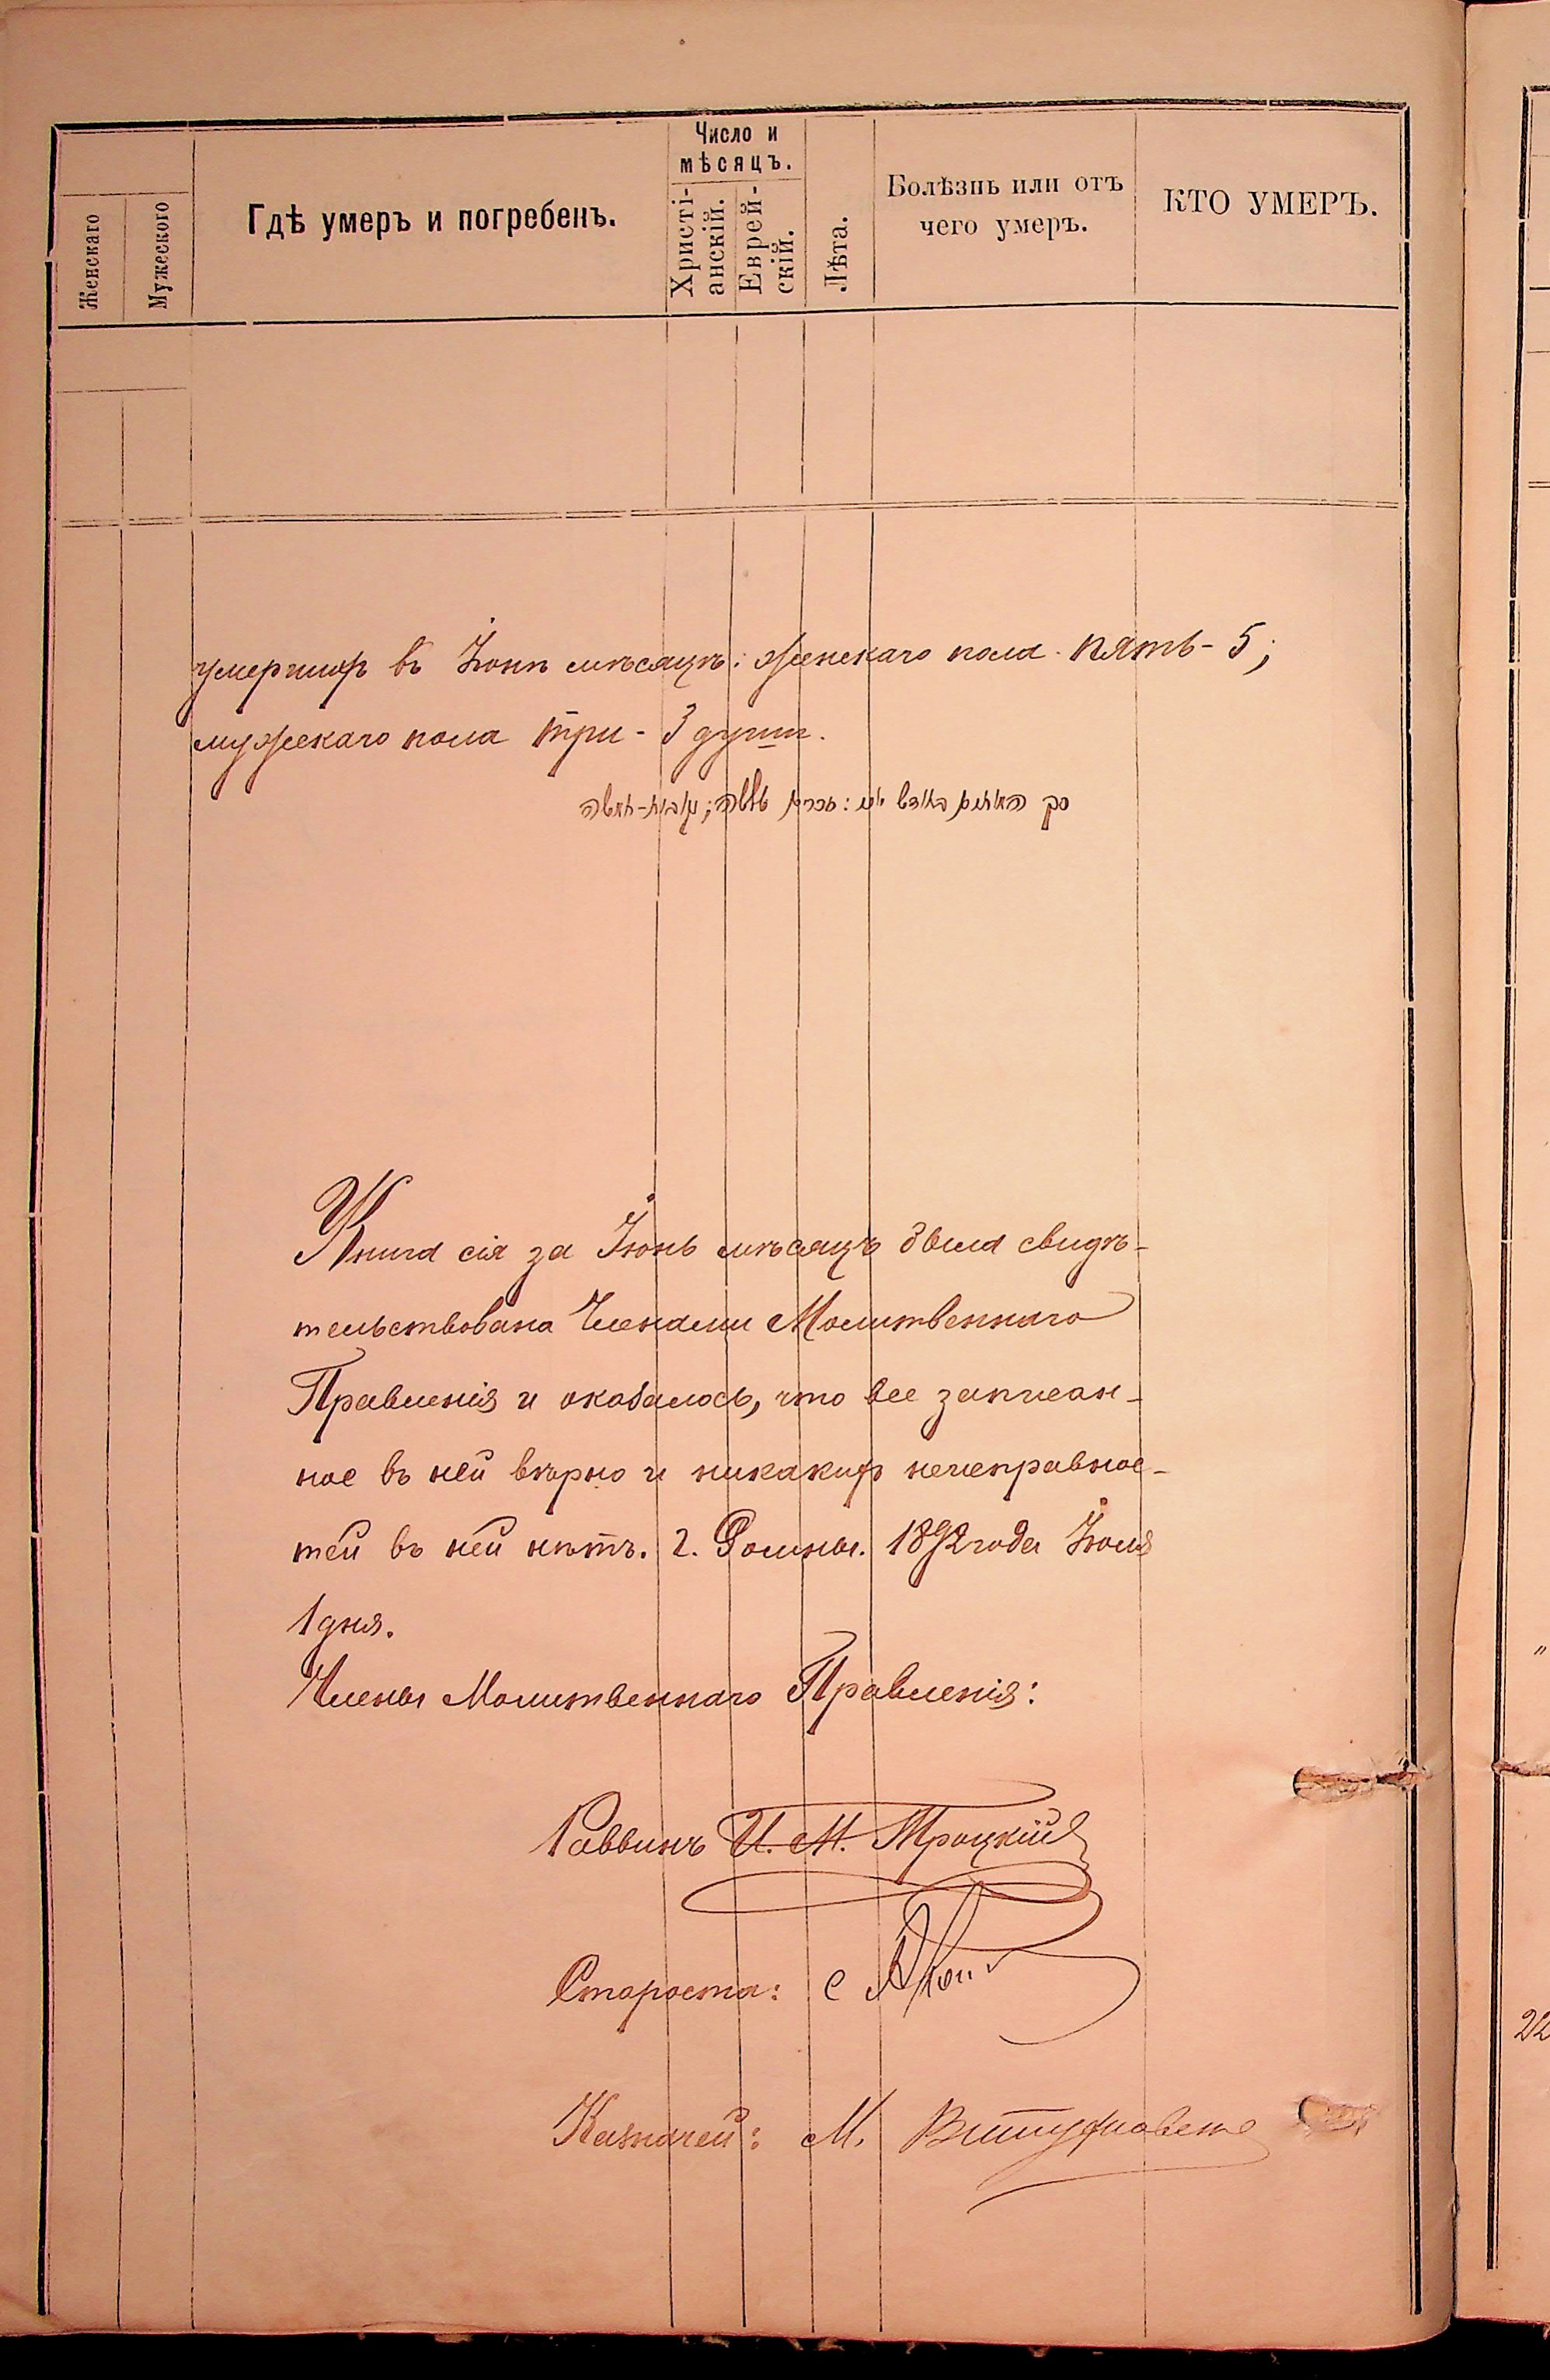 Женскаго
Мужеского
Гдѣ умеръ и погребенъ.
Число и
мѣсяцъ.
Христі-
анскій.
Еврей-
скій.
Лѣта.
Болѣзнь или отъ
чего умеръ.
КТО УМЕРЪ.
умершихъ въ Іюнѣ мѣсяцѣ: женскаго пола пять - 5;
мужскаго пола три - 3 души.
Книга сія за Іюнь мѣсяцъ была свидѣ-
тельствована Членами Молитвеннаго
Правленія и оказалось, что все записан-
ное въ ней вѣрно и никакихъ неисправнос-
тей въ ней нѣтъ. г. Ромны. 1892 года Іюля
1 дня.
Члены Молитвеннаго Правленія:
Раввинъ И. М. Троцкій
Староста:
Казначей: М.
22